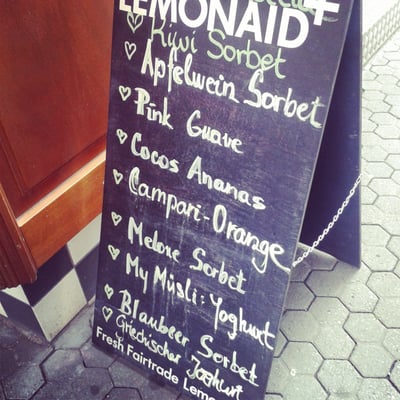 LEMONAID+
Kiwi Sorbet
Apfelwein Sorbet
Pink Guave
Cocos Ananas
Campari-Orange
Melone Sorbet
My Müsli: Yoghurt
Blaubeer Sorbet
Griechischer Joghurt
Fresh Fairtrade Lemon